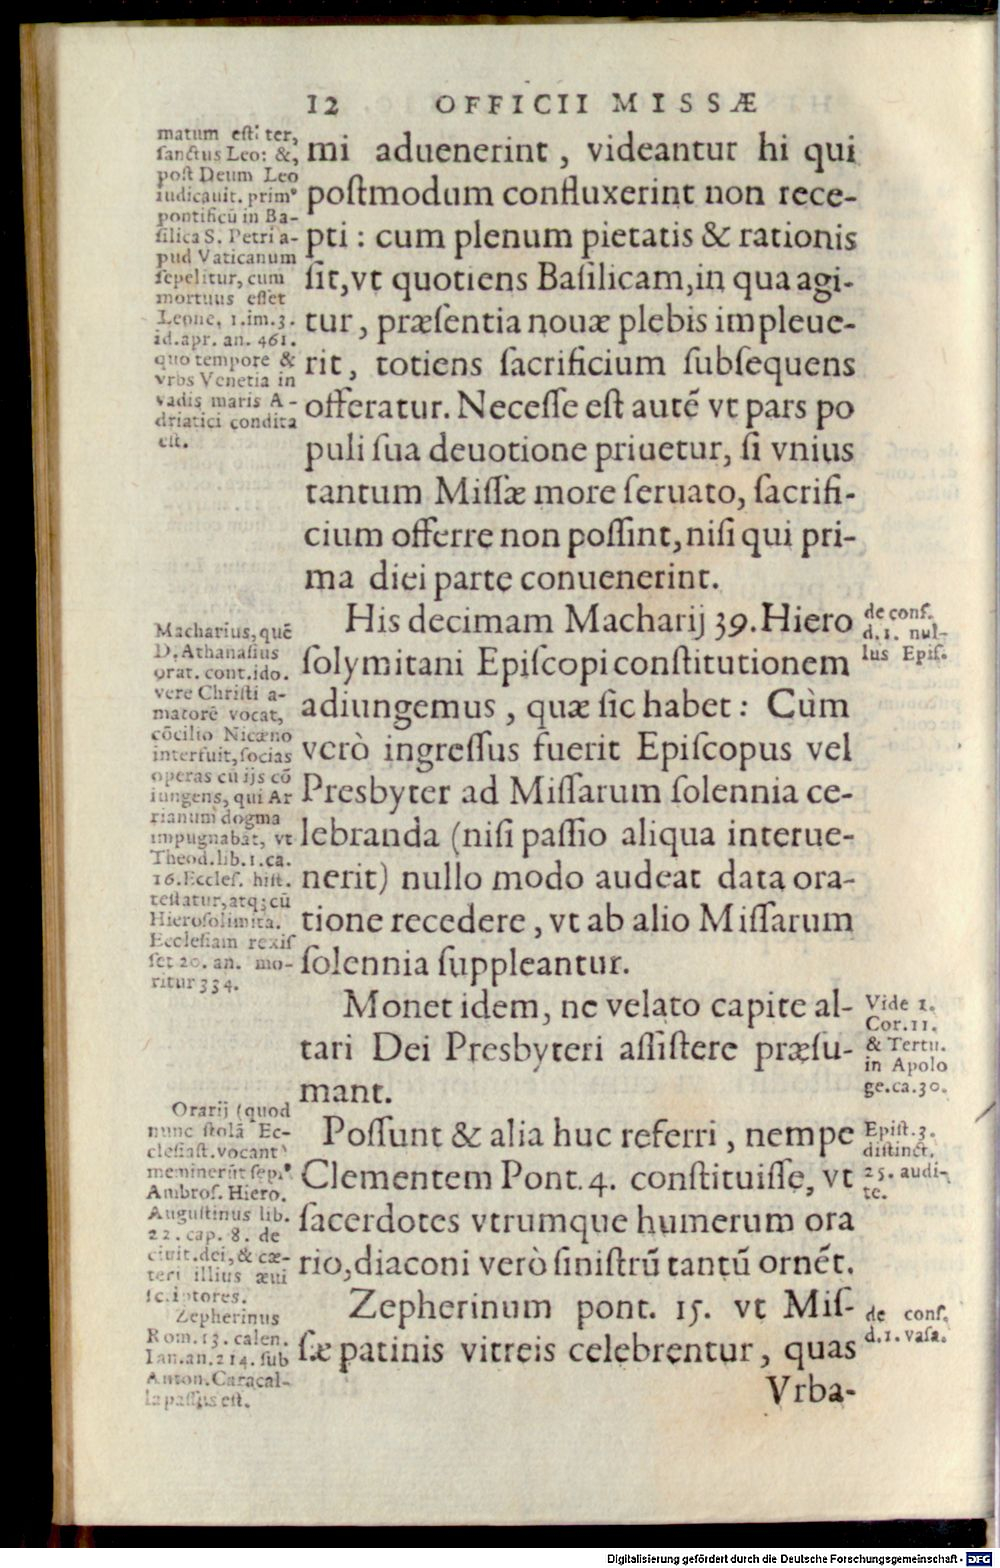 12 OFFICII MISSÆ
matum est: ter,
sanctus Leo: &,
post Deum Leo
iudicauit. prim⁹
pontificū in Ba-
silica S. Petri a-
pud Vaticanum
sepelitur, cum
mortuus esset
Leone, 1.im.3.
id.apr. an. 461.
quo tempore &
vrbs Venetia in
vadis maris A-
driatici condita
est.
mi aduenerint, videantur hi qui
postmodum confluxerint non rece-
pti: cum plenum pietatis & rationis
sit, vt quotiens Basilicam, in qua agi-
tur, præsentia nouæ plebis impleue-
rit, totiens sacrificium subsequens
offeratur. Necesse est autē vt pars po
puli sua deuotione priuetur, si vnius
tantum Missæ more seruato, sacrifi-
cium offerre non possint, nisi qui pri-
ma diei parte conuenerint.
Macharius, quē
D. Athanasius
orat. cont.ido.
vere Christi a-
matorē vocat,
cōcilio Nicæno
interfuit, socias
operas cū ijs cō
iungens, qui Ar
rianum dogma
impugnabāt, vt
Theod.lib.1.ca.
16.Eccles. hist.
testatur, atq; cū
Hierosolimita.
Ecclesiam rexis
set 20. an. mo-
ritur 334.
His decimam Macharij 39. Hiero
solymitani Episcopi constitutionem
adiungemus, quæ sic habet: Cùm
verò ingressus fuerit Episcopus vel
Presbyter ad Missarum solennia ce-
lebranda (nisi passio aliqua interue-
nerit) nullo modo audeat data ora-
tione recedere, vt ab alio Missarum
solennia suppleantur.
de cons.
d.1. nul-
lus Epis.
Monet idem, ne velato capite al-
tari Dei Presbyteri assistere præsu-
mant.
Vide 1.
Cor.11.
& Tertu.
in Apolo
ge.ca.30.
Orarij (quod
nunc stolā Ec-
clesiast. vocant
meminerūt sepi⁹
Ambros. Hiero.
Augustinus lib.
22. cap. 8. de
ciuit.dei, & cæ-
teri illius æui
scriptores.
Possunt & alia huc referri, nempe
Clementem Pont. 4. constituisse, vt
sacerdotes vtrumque humerum ora
rio, diaconi verò sinistrū tantū ornēt.
Epist.3.
distinct.
25. audi-
te.
Zepherinus
Rom. 13. calen.
Ian.an.214. sub
Anton. Caracal-
la passus est.
Zepherinum pont. 15. vt Mis-
sæ patinis vitreis celebrentur, quas
de cons.
d.1. vasa.
Vrba-
Digitalisierung gefördert durch die Deutsche Forschungsgemeinschaft - DFG